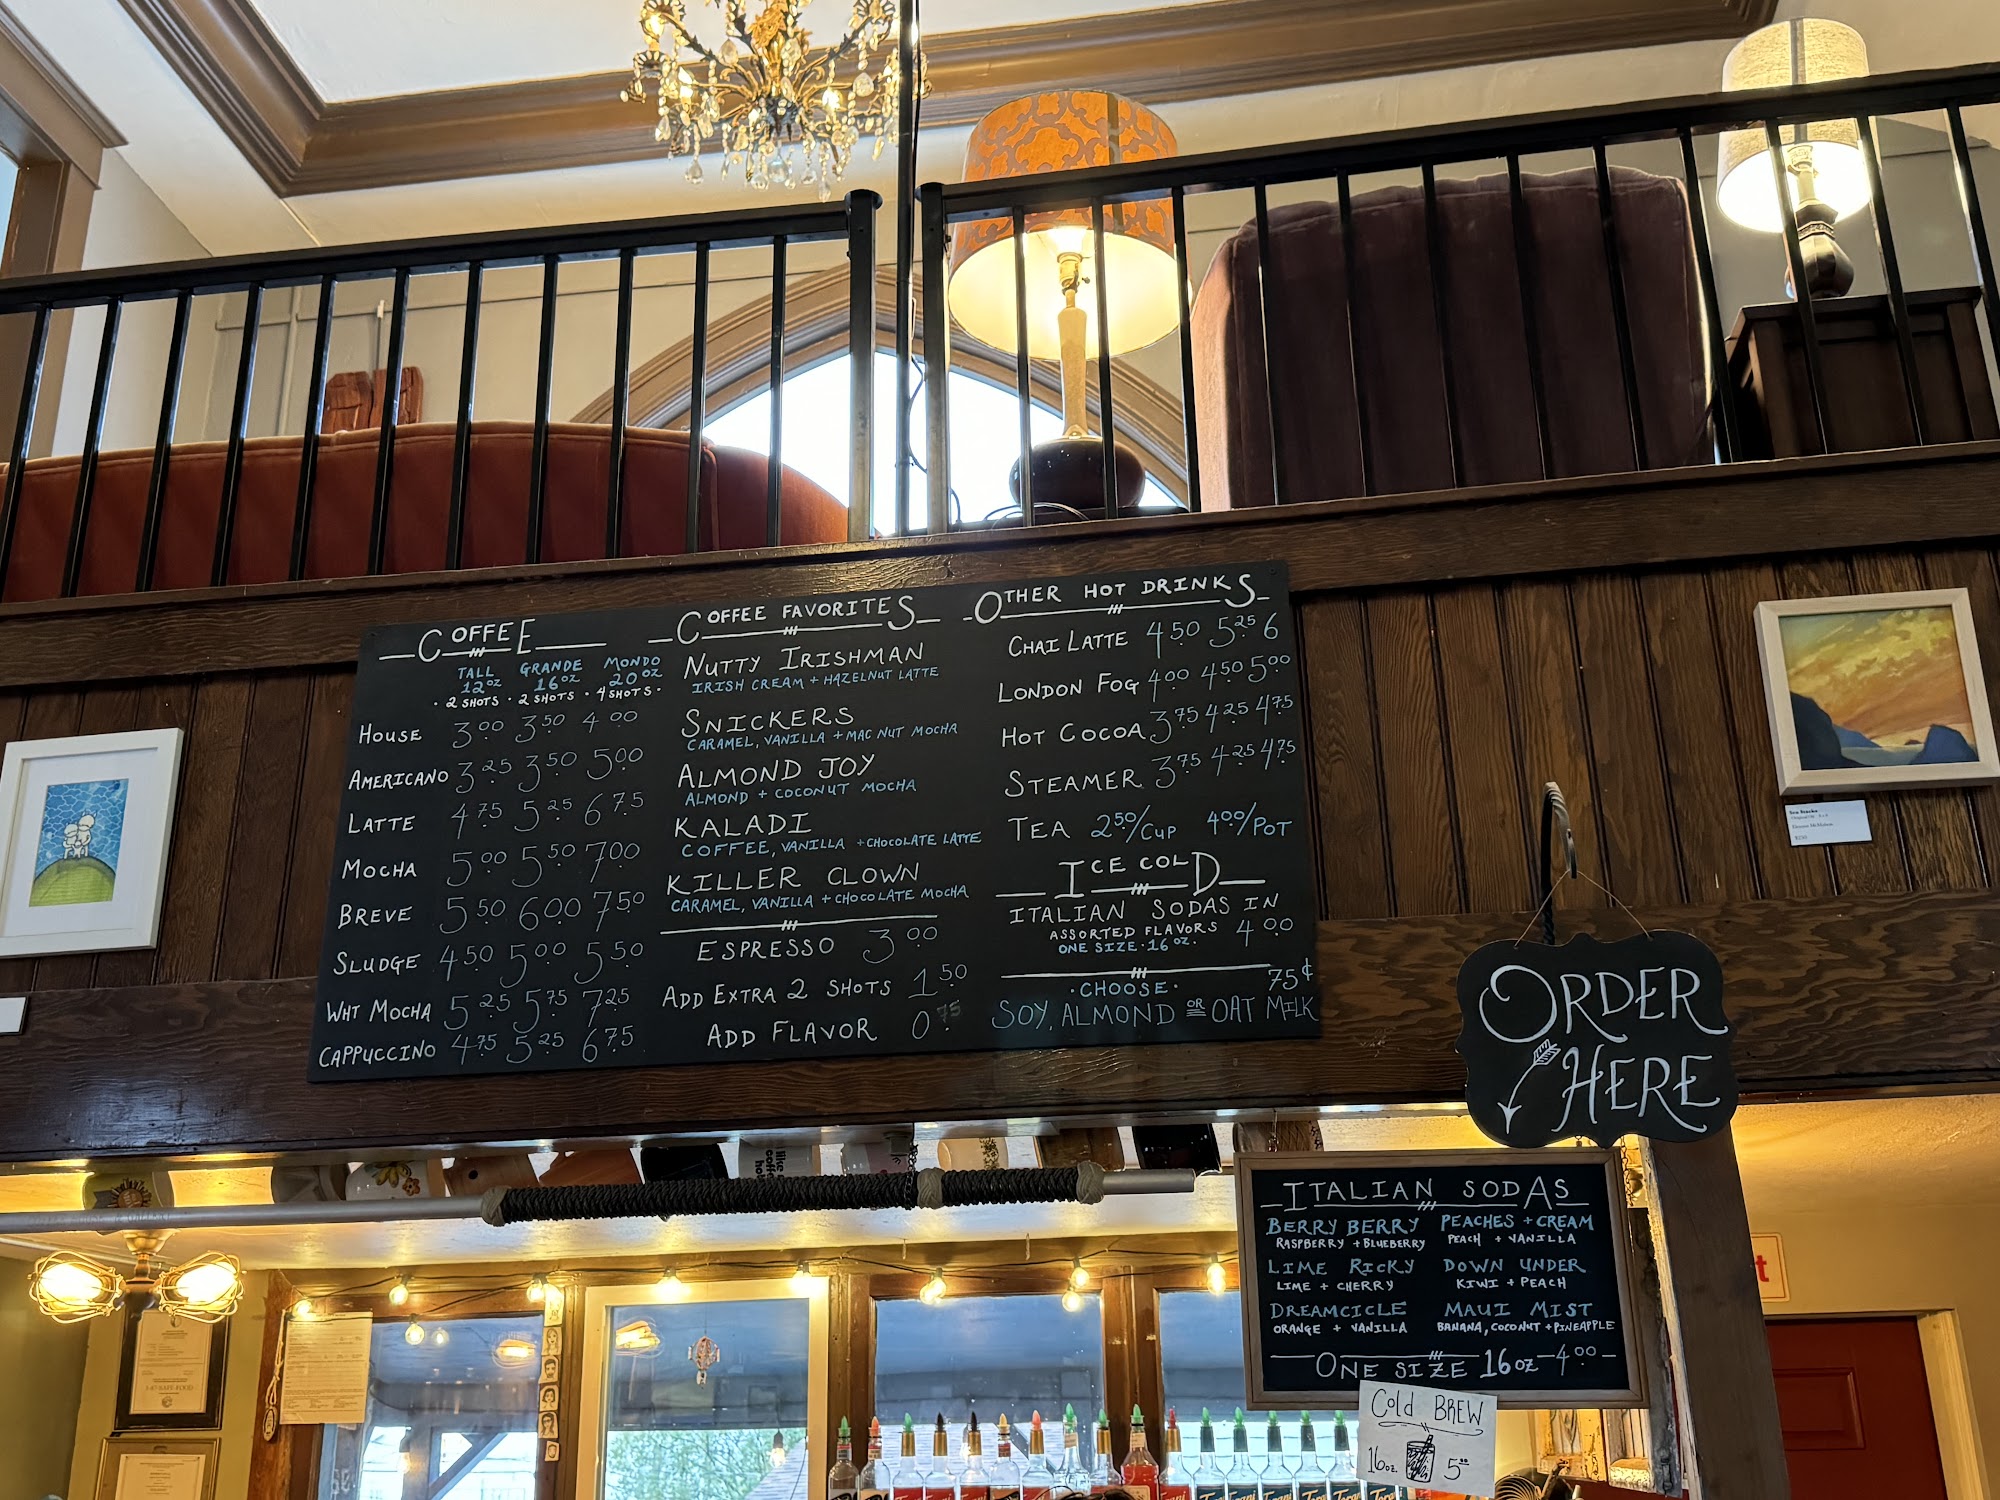 COFFEE
TALL GRANDE MONDO
12oz 16oz 20oz
· 2 SHOTS · 2 SHOTS · 4 SHOTS ·
HOUSE 3.00 3.50 4.00
AMERICANO 3.25 3.50 5.00
LATTE 4.75 5.25 6.75
MOCHA 5.00 5.50 7.00
BREVE 5.50 6.00 7.50
SLUDGE 4.50 5.00 5.50
WHT MOCHA 5.25 5.75 7.25
CAPPUCCINO 4.75 5.25 6.75
COFFEE FAVORITES
NUTTY IRISHMAN
IRISH CREAM + HAZELNUT LATTE
SNICKERS
CARAMEL, VANILLA + MAC NUT MOCHA
ALMOND JOY
ALMOND + COCONUT MOCHA
KALADI
COFFEE, VANILLA + CHOCOLATE LATTE
KILLER CLOWN
CARAMEL, VANILLA + CHOCOLATE MOCHA
ESPRESSO 3.00
ADD EXTRA 2 SHOTS 1.50
ADD FLAVOR 0.75
OTHER HOT DRINKS
CHAI LATTE 4.50 5.25 6
LONDON FOG 4.00 4.50 5.00
HOT COCOA 3.75 4.25 4.75
STEAMER 3.75 4.25 4.75
TEA 2.50/CUP 4.00/POT
ICE COLD
ITALIAN SODAS IN
ASSORTED FLAVORS 4.00
ONE SIZE · 16 oz.
· CHOOSE · 75¢
SOY, ALMOND OR OAT MILK
ORDER
HERE
ITALIAN SODAS
BERRY BERRY
RASPBERRY + BLUEBERRY
LIME RICKY
LIME + CHERRY
DREAMCICLE
ORANGE + VANILLA
PEACHES + CREAM
PEACH + VANILLA
DOWN UNDER
KIWI + PEACH
MAUI MIST
BANANA, COCONUT + PINEAPPLE
ONE SIZE 16oz - 4.00
Cold BREW
16oz. 5.00
like
coffee